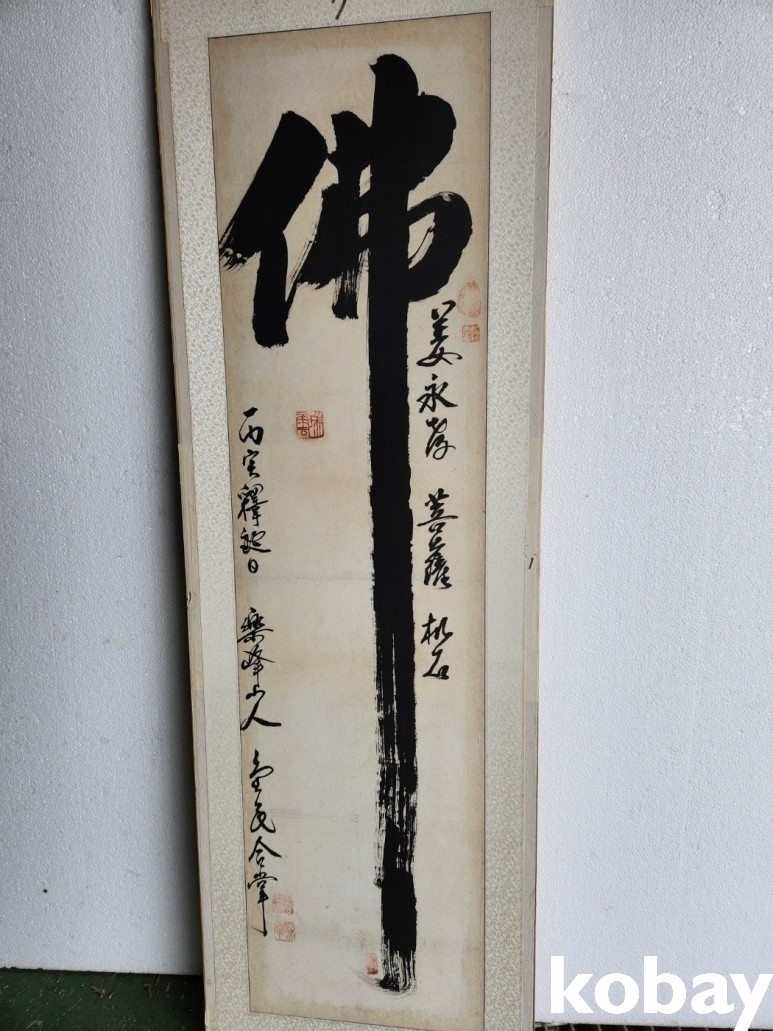 佛
姜永孝 菩薩 机右
丙寅釋誕日 樂峰山人 金民合掌
kobay